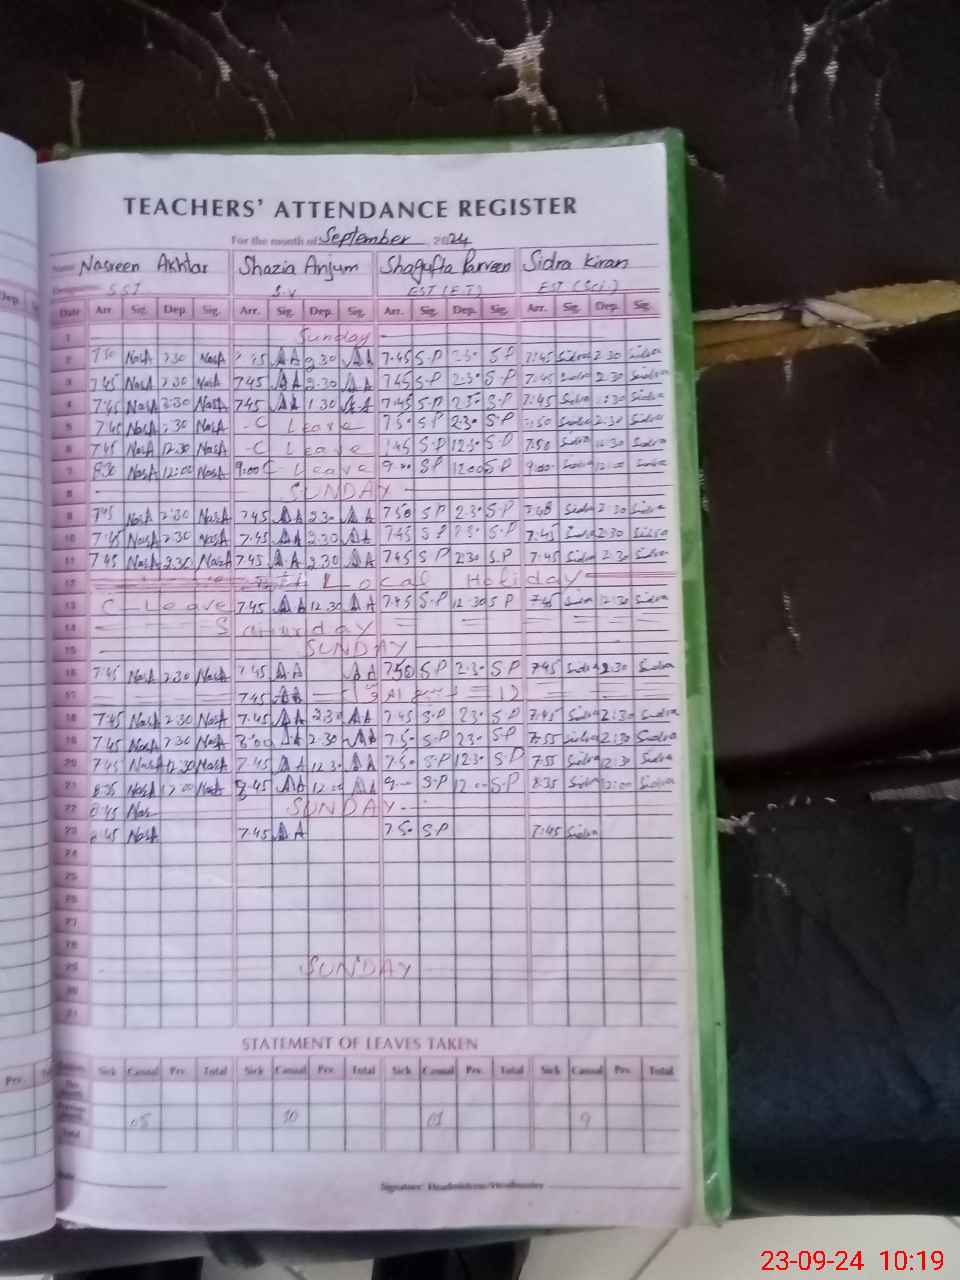 TEACHERS' ATTENDANCE REGISTER
For the month of September 2024
Name Nasreen Akhtar Shazia Anjum Shagufta Parveen Sidra Kiran
SST S.V EST (E.T) EST (Sci.)
Date Arr. Sig. Dep. Sig. Arr. Sig. Dep. Sig. Arr. Sig. Dep. Sig. Arr. Sig. Dep. Sig.
1 Sunday
2 7:30 NasA 2:30 NasA AA 2.30 AA 7.45 S.P 2:30 S.P 7:45 Sidra 2:30 Sidra
3 7:45 NasA 2:30 NasA 7.45 AA 2.30 AA 7.45 S.P 2.30 S.P 7:45 Sidra 2:30 Sidra
4 7:45 NasA NasA 7.45 AA 1.30 AA 7.45 S.P S.P 7:45 Sidra Sidra
5 7:45 NasA 2:30 NasA C Leave 7.50 S.P 2.30 S.P 7:50 Sidra 2:30 Sidra
6 7:45 NasA 12:30 NasA C Leave 7.45 S.P 12.30 S.P 7:50 Sidra 12:30 Sidra
7 8:30 NasA 12:00 NasA 9:00 C Leave 9.00 S.P 12.00 S.P 9:00 Sidra 12:00 Sidra
8 SUNDAY
9 7:45 NasA 2:30 NasA 7.45 AA 2.30 AA 7.50 S.P 2.30 S.P 7:48 Sidra 2:30 Sidra
10 7:45 NasA 2:30 NasA 7.45 AA 2.30 AA 7.45 S.P 2.30 S.P 7:45 Sidra 2:30 Sidra
11 7:45 NasA 2:30 NasA 7.45 AA 2.30 AA 7.45 S.P 2.30 S.P 7:45 Sidra 2:30 Sidra
12 Local Holiday
13 C-Leave 7.45 AA 12.30 AA 7.45 S.P 12.30 S.P 7:45 Sidra 12:30 Sidra
14 Saturday
15 SUNDAY
16 7:45 NasA 2:30 NasA 7.45 AA AA 7.50 S.P 2.30 S.P 7:45 Sidra 2:30 Sidra
17 7.45 AA
18 7:45 NasA 2:30 NasA 7.45 AA 2.30 AA 7.45 S.P 2.30 S.P 7:45 Sidra 2:30 Sidra
19 7:45 NasA 2:30 NasA 8:00 AA 2.30 AA 7.50 S.P 2.30 S.P 7:55 Sidra 2:30 Sidra
20 7:45 NasA 12:30 NasA 7.45 AA 12.30 AA 7.50 S.P 12.30 S.P 7:55 Sidra 12:30 Sidra
21 8:35 NasA 12:00 NasA 8.45 AA 12.00 AA S.P S.P 8:35 Sidra 12:00 Sidra
22 8:45 Nas SUNDAY
23 NasA 7.45 AA 7.50 S.P 7:45 Sidra
24
25
26
27
28
29 SUNDAY
30
31
STATEMENT OF LEAVES TAKEN
Sick Casual Prv. Total Sick Casual Prv. Total Sick Casual Prv. Total Sick Casual Prv. Total
05 10 01 9
Total
Signature: Headmistress/Headmaster
Dep.
Prv.
23-09-24 10:19